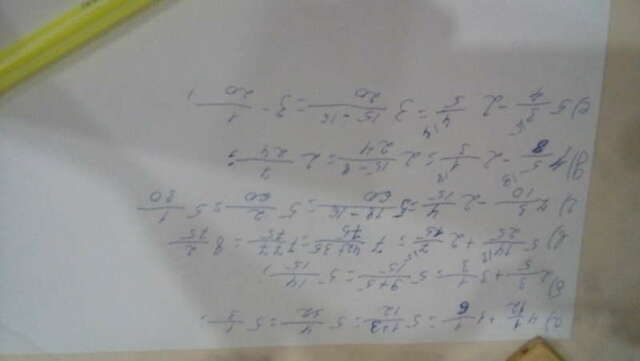 а) 4 1/12 + 1 1/6 = 5 1+3/12 = 5 4/12 = 5 1/3,
б) 2 3/5 + 3 1/3 = 5 9+5/15 = 5 14/15;
в) 5 14/25 + 2 7/15 = 7 42+35/75 = 7 77/75 = 8 2/75
г) 7 3/10 - 2 4/15 = 5 18-16/60 = 5 2/60 = 5 1/30
д) 4 5/8 - 2 1/3 = 2 15-8/24 = 2 7/24;
е) 5 3/4 - 2 4/5 = 3 15-16/20 = 3 - 1/20,